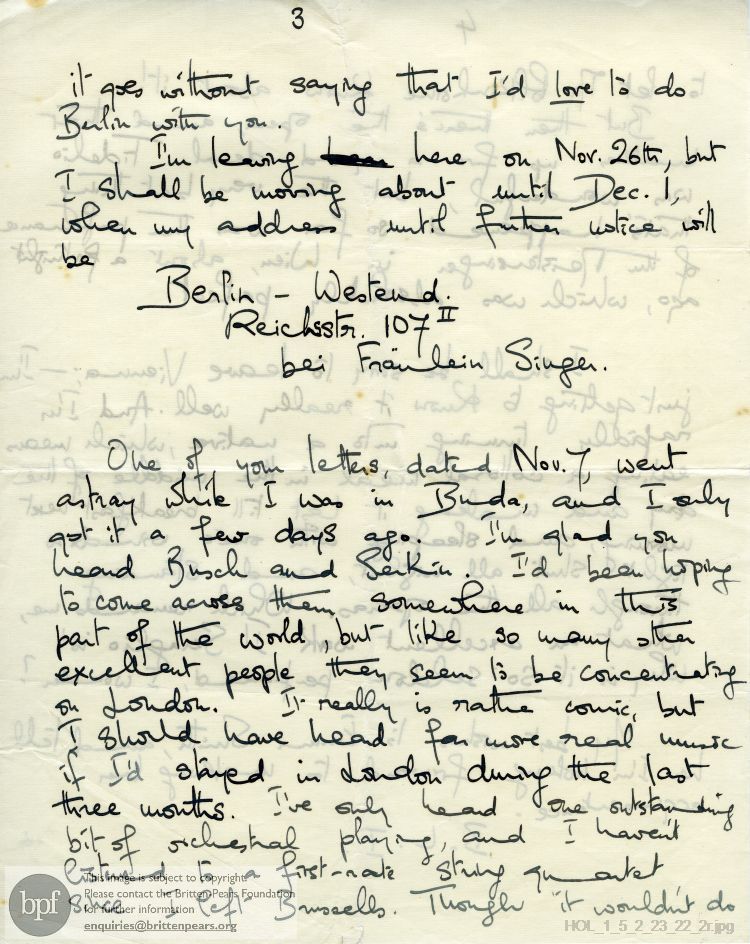 3
it goes without saying that I'd love to do
Berlin with you.
I'm leaving here on Nov. 26th, but
I shall be moving about until Dec. 1,
when my address until further notice will
be
Berlin - Westend.
Reichsstr. 107 II
bei Fräulein Singer.
One of your letters, dated Nov. 7, went
astray while I was in Buda, and I only
got it a few days ago. I'm glad you
heard Busch and Serkin. I'd been hoping
to come across them somewhere in this
part of the world, but like so many other
excellent people they seem to be concentrating
on London. It really is rather comic, but
I should have heard far more real music
if I'd stayed in London during the last
three months. I've only heard one outstanding
bit of orchestral playing, and I haven't
listened to a first-rate string quartet
since I left Brussels. Though it wouldn't do
bpf
This image is subject to copyright.
Please contact the Britten-Pears Foundation
for further information
enquiries@brittenpears.org
HOL_1_5_2_23_22_2r.jpg